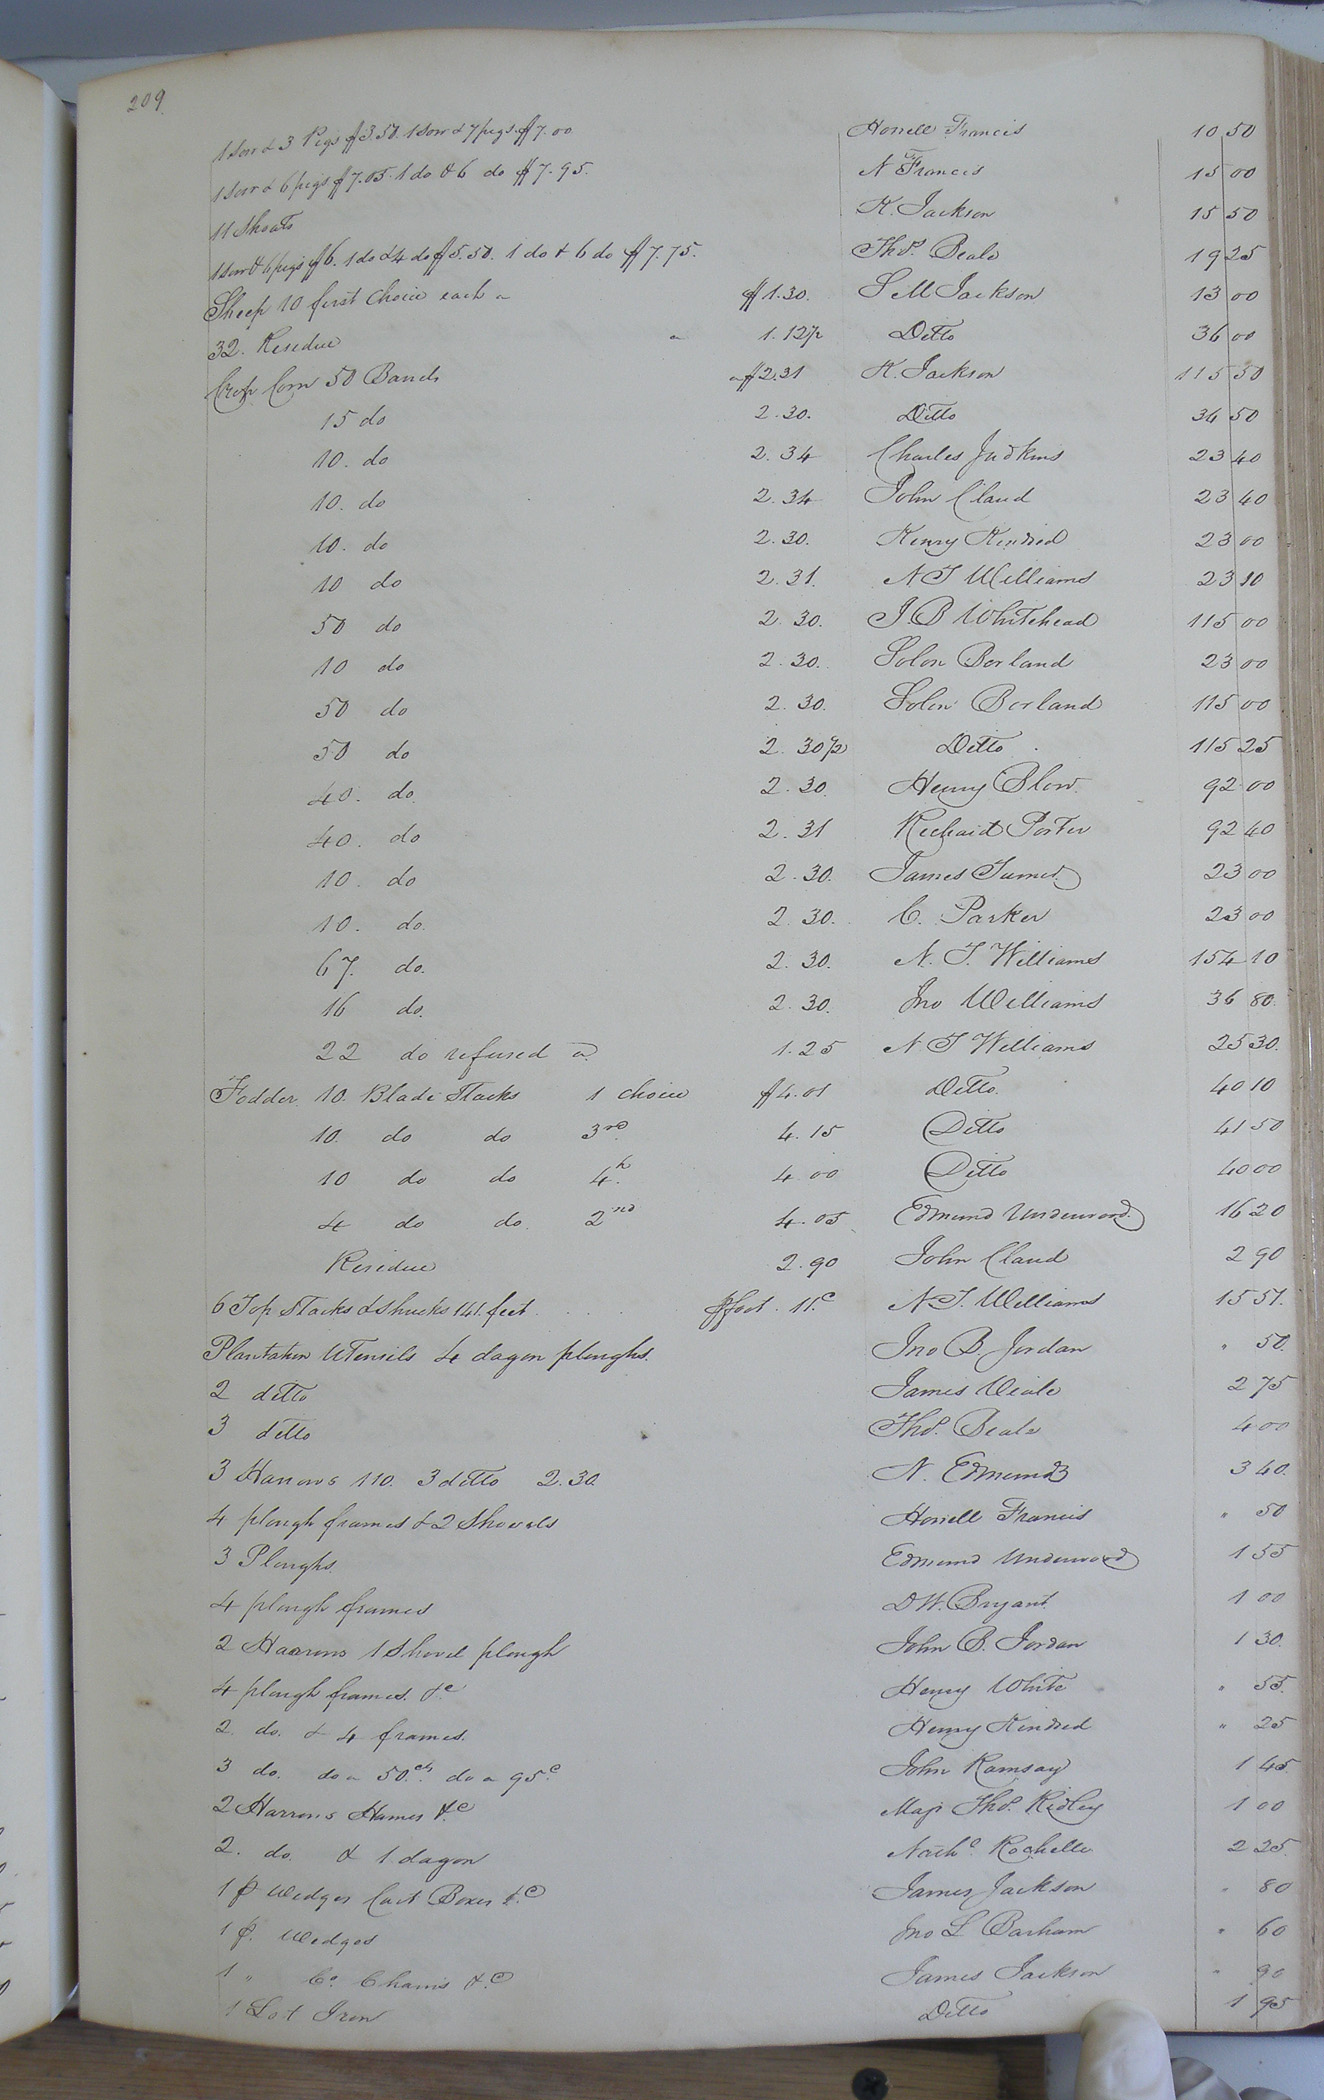 209
1 Sow & 3 Pigs $3.50. 1 Sow & 7 pigs $7.00 Howell Francis 10 50
1 Sow & 6 pigs $7.05. 1 do & 6 do $7.95. N Francis 15 00
11 Shoats K. Jackson 15 50
1 Sow & 6 pigs $6. 1 do & 4 do $5.50. 1 do & 6 do $7.75. Thos. Beale 19 25
Sheep 10 first Choice each a $1.30. S M Jackson 13 00
32. Residue a 1.12½ Ditto 36 00
Crop Corn 50 Barrels a $2.31 K. Jackson 115 50
15 do 2.30. Ditto 34 50
10. do 2.34 Charles Judkins 23 40
10. do 2.34 John Claud 23 40
10. do 2.30. Henry Kindred 23 00
10 do 2.31. N T Williams 23 10
50 do 2.30. J B Whitehead 115 00
10 do 2.30. Solon Borland 23 00
50 do 2.30. Solon Borland 115 00
50 do 2.30½ Ditto 115 25
40. do. 2.30. Henry Blow 92 00
40. do 2.31 Richard Porter 92 40
10. do 2.30. James Turner 23 00
10. do. 2.30. C. Parker 23 00
67. do. 2.30. N. T. Williams 154 10
16 do. 2.30. Jno Williams 36 80.
22 do refused a 1.25 N T Williams 25 30.
Fodder 10. Blade Stacks 1 choice $4.01 Ditto. 40 10
10. do do 3rd 4.15 Ditto 41 50
10 do do 4th 4.00 Ditto 40 00
4 do do. 2nd 4.05 Edmund Underwood 16 20
Residue 2.90 John Claud 2 90
6 Top Stacks & Shucks 141. feet . . . . ⅌ foot. 11.c N. T. Williams 15 51.
Plantation Utensils 4 dagon ploughs. Jno B. Jordan " 50.
2 ditto James Weale 2 75
3 ditto Thos. Beale 4 00
3 Harrows 110. 3 ditto 2.30. N. Edmunds 3 40.
4 plough frames & 2 Shovels Howell Francis " 50
3 Ploughs. Edmund Underwood 1 55
4 plough frames D W. Bryant 1 00
2 Haarows 1 Shovel plough John B. Jordan 1 30.
4 plough frames. &c Henry White " 55.
2. do. & 4 frames. Henry Kindred " 25
3 do. do a 50.cts do a 95.c John Ramsay 1 45
2 Harrows Hames &c Maj Thos. Ridley 1 00
2. do. & 1 dagon Nathl Rochelle 2 25.
1 p Wedges Cart Boxes &c James Jackson " 80
1 p. Wedges Jno L Barham " 60
1 " Chains &c James Jackson " 90
1 Lot Iron Ditto 1 95